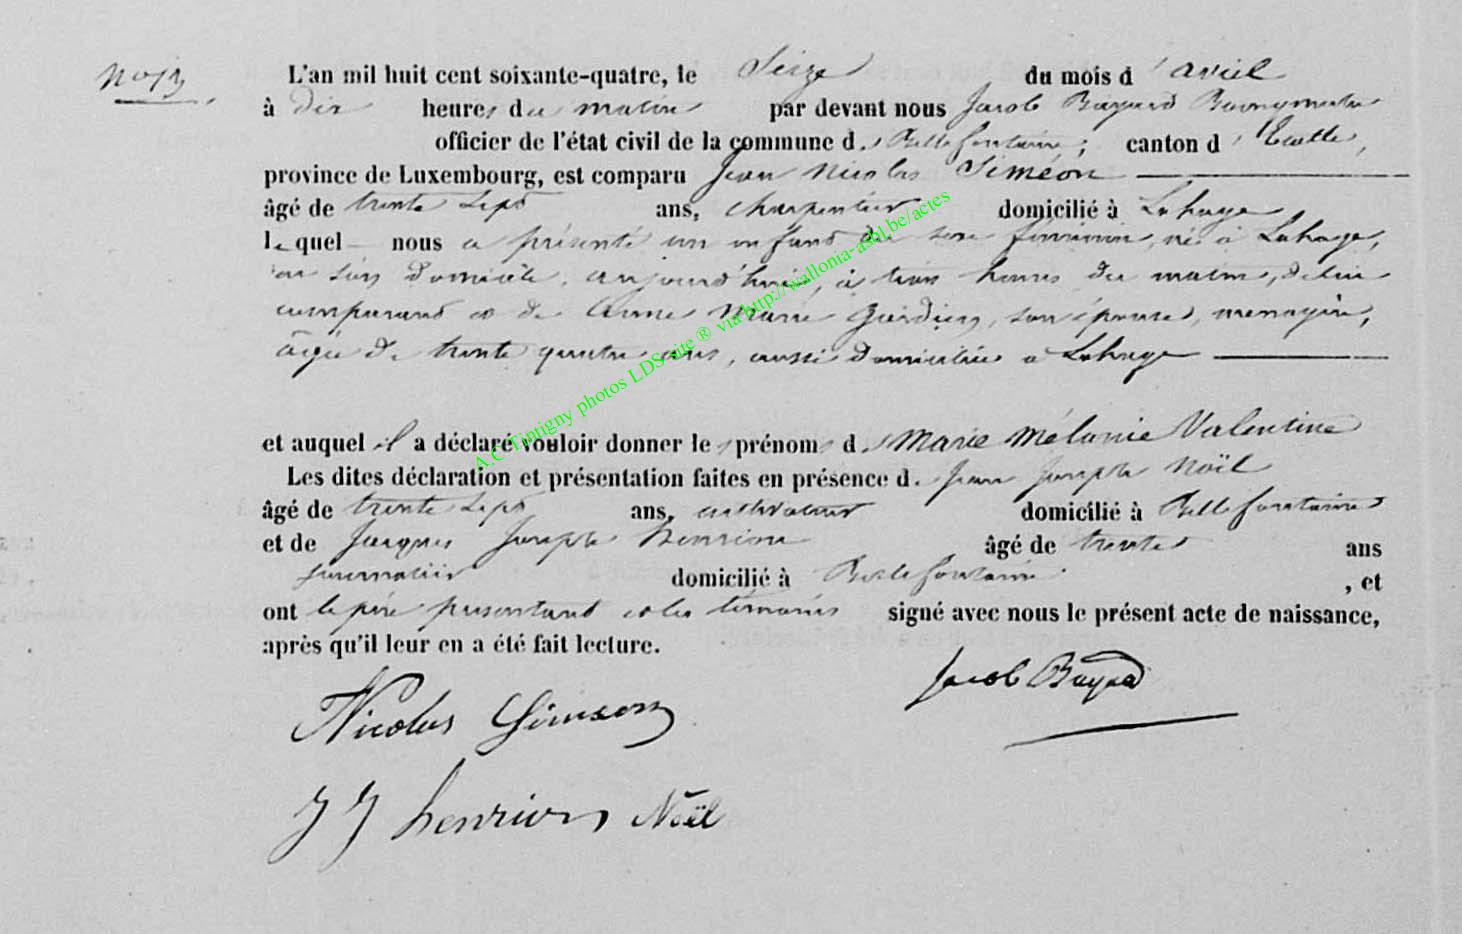 No 13
L'an mil huit cent soixante-quatre, le Seize du mois d'avril
à dix heures du matin par devant nous Jacob Bayard Bourgmestre
officier de l'état civil de la commune de Bellefontaine, canton d'Etalle,
province de Luxembourg, est comparu Jean Nicolas Siméon
âgé de trente sept ans, charpentier domicilié à Lahage
lequel nous a présenté un enfant du sexe féminin, né à Lahage,
en son domicile, aujourd'hui, à trois heures du matin, de lui
comparant et de Anne Marie Gardien, son épouse, menagère,
âgée de trente quatre ans, aussi domiciliée à Lahage
et auquel il a déclaré vouloir donner les prénoms de Marie Mélanie Valentine
Les dites déclaration et présentation faites en présence de Jean Joseph Noël
âgé de trente sept ans, cultivateur domicilié à Bellefontaine
et de Jacques Joseph Henrion âgé de trente ans
journalier domicilié à Bellefontaine, et
ont le père présentant et les témoins signé avec nous le présent acte de naissance,
après qu'il leur en a été fait lecture.
Nicolas Simeon Jacob Bayard
J J henrion Noël
A.C Tintigny photos LDS site ® via http://wallonia-asbl.be/actes